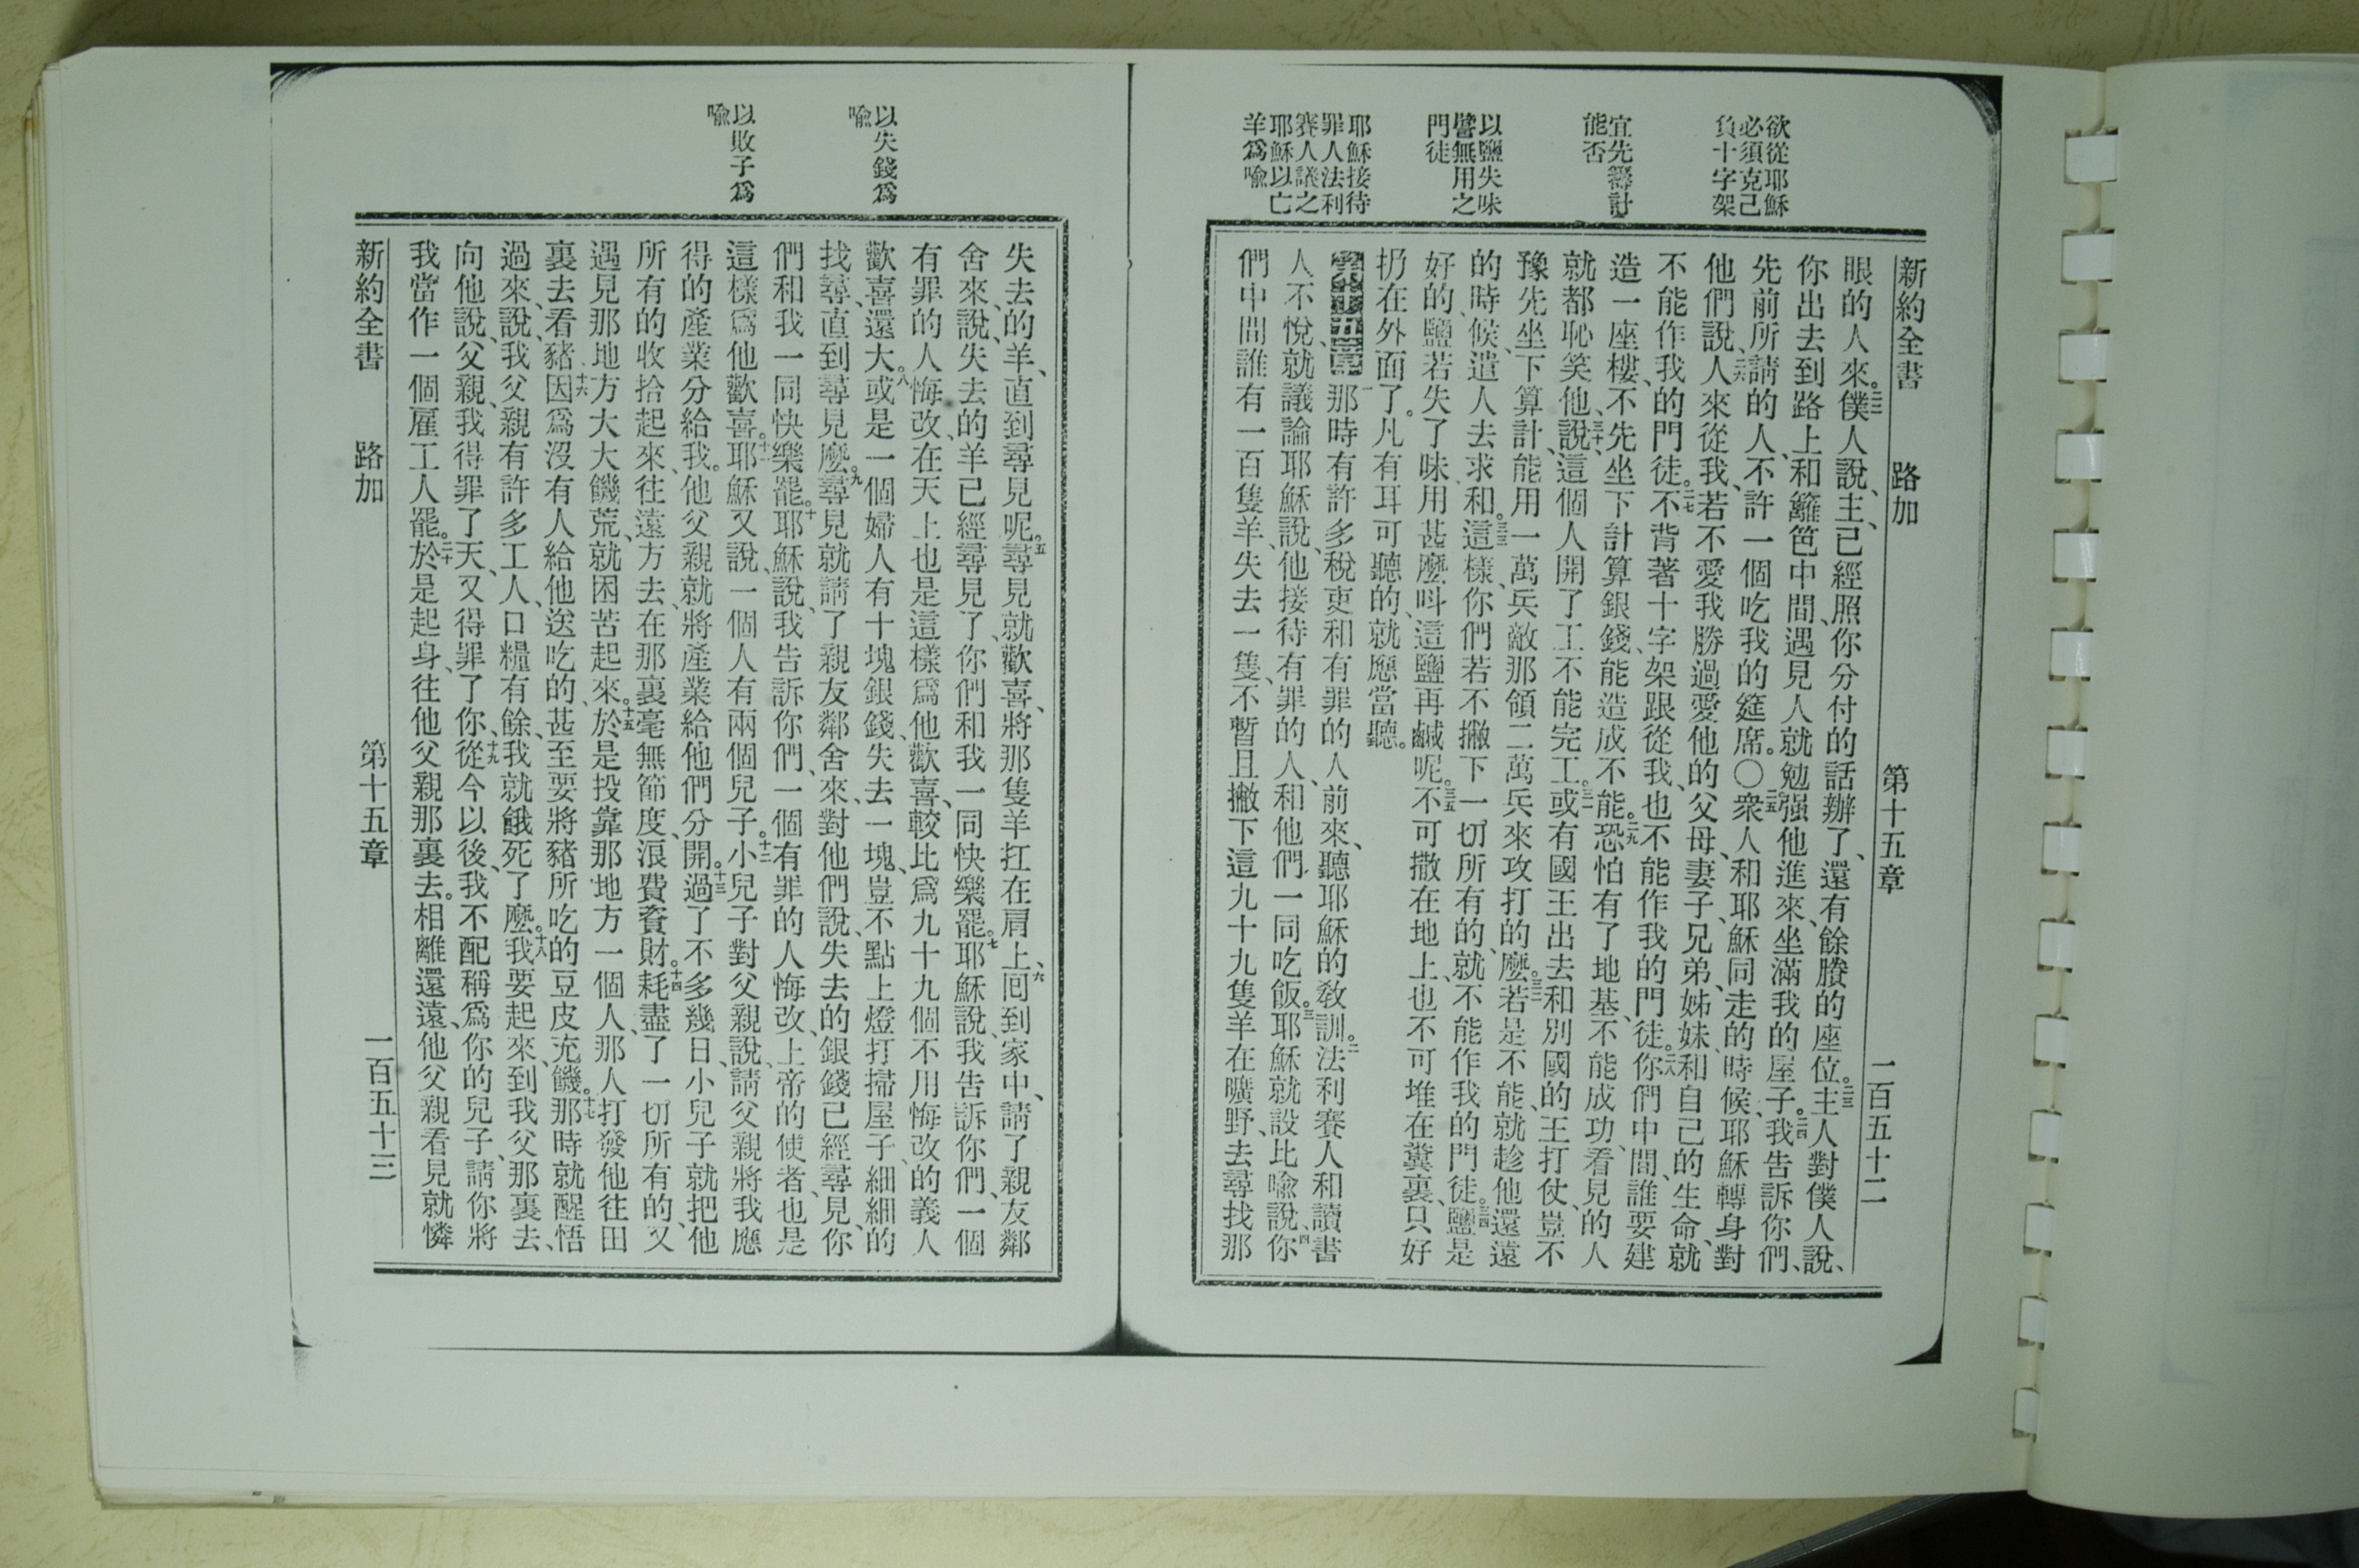 欲從耶穌
必須克己
負十字架
宜先籌計
能否
以鹽失味
譬無用之
門徒
耶穌接待
罪人法利
賽人議之
耶穌以亡
羊爲喩
新約全書 路加 第十五章 一百五十二
眼的人來。二二僕人說、主、已經照你分付的話辦了、還有餘賸的座位。二三主人對僕人說、
你出去到路上和籬笆中間、遇見人就勉强他進來、坐滿我的屋子。二四我告訴你們、
先前所請的人、不許一個吃我的筵席。〇二五衆人和耶穌同走的時候、耶穌轉身對
他們說、二六人來從我、若不愛我勝過愛他的父母、妻子、兄弟、姊妹、和自己的生命、就
不能作我的門徒。二七不背著十字架跟從我、也不能作我的門徒。二八你們中間、誰要建
造一座樓、不先坐下計算銀錢、能造成不能。二九恐怕有了地基、不能成功、看見的人
就都恥笑他、三十說、這個人開了工不能完工。三一或有國王出去和別國的王打仗、豈不
豫先坐下算計、能用一萬兵、敵那領二萬兵來攻打的麽。三二若是不能、就趁他還遠
的時候、遣人去求和。三三這樣、你們若不撇下一切所有的、就不能作我的門徒。三四鹽是
好的、鹽若失了味、用甚麽呌這鹽再鹹呢。三五不可撒在地上、也不可堆在糞裏、只好
扔在外面了。凡有耳可聽的、就應當聽。
第十五章 一那時有許多稅吏和有罪的人、前來、聽耶穌的敎訓。二法利賽人和讀書
人不悅、就議論耶穌說、他接待有罪的人、和他們一同吃飯。三耶穌就設比喩說、四你
們中間誰有一百隻羊、失去一隻、不暫且撇下這九十九隻羊在曠野、去尋找那
以失錢爲
喩
以敗子爲
喩
失去的羊、直到尋見呢。五尋見就歡喜、將那隻羊扛在肩上、六囘到家中、請了親友鄰
舍來、說、失去的羊已經尋見了、你們和我一同快樂罷。七耶穌說、我告訴你們、一個
有罪的人悔改、在天上也是這樣爲他歡喜、較比爲九十九個不用悔改的義人
歡喜還大。八或是一個婦人有十塊銀錢、失去一塊、豈不點上燈打掃屋子、細細的
找尋、直到尋見麽。九尋見就請了親友鄰舍來、對他們說、失去的銀錢已經尋見、你
們和我一同快樂罷。十耶穌說、我告訴你們、一個有罪的人悔改、上帝的使者、也是
這樣爲他歡喜。十一耶穌又說、一個人有兩個兒子。十二小兒子對父親說、請父親將我應
得的產業分給我。他父親就將產業給他們分開。十三過了不多幾日、小兒子就把他
所有的收拾起來、往遠方去、在那裏毫無節度、浪費貲財。十四耗盡了一切所有的、又
遇見那地方大大饑荒、就困苦起來。十五於是投靠那地方一個人、那人打發他往田
裏去看豬、十六因爲沒有人給他送吃的、甚至要將豬所吃的豆皮充饑。十七那時就醒悟
過來、說、我父親有許多工人、口糧有餘、我就餓死了麽。十八我要起來、到我父那裏去、
向他說、父親、我得罪了天、又得罪了你、十九從今以後、我不配稱爲你的兒子、請你將
我當作一個雇工人罷。二十於是起身、往他父親那裏去。相離還遠、他父親看見就憐
新約全書 路加 第十五章 一百五十三